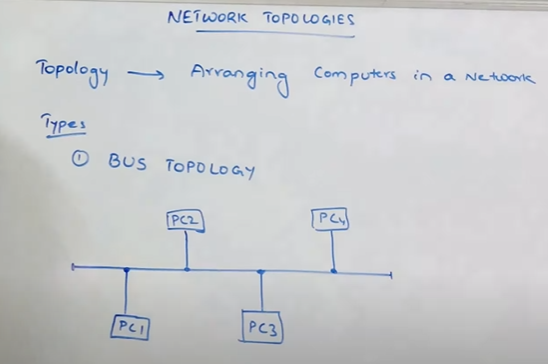 NETWORK TOPOLOGIES
Topology → Arranging Computers in a Network
Types
① BUS TOPOLOGY
PC2
PC4
PC1
PC3